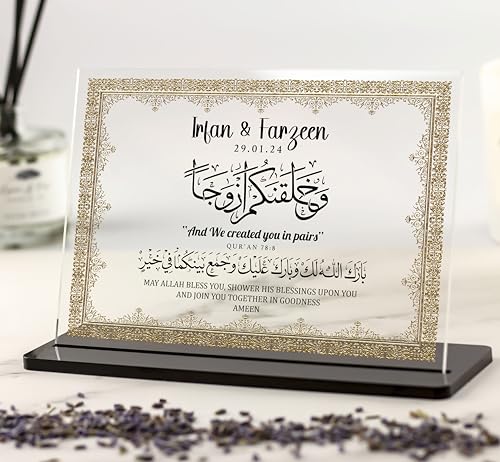 Irfan & Farzeen
29.01.24
وَخَلَقْنَٰكُمْ أَزْوَٰجًا
"And We created you in pairs"
QUR'AN 78:8
بَارَكَ اللهُ لَكَ وَبَارَكَ عَلَيْكَ وَجَمَعَ بَيْنَكُمَا فِي خَيْرٍ
MAY ALLAH BLESS YOU, SHOWER HIS BLESSINGS UPON YOU
AND JOIN YOU TOGETHER IN GOODNESS
AMEEN